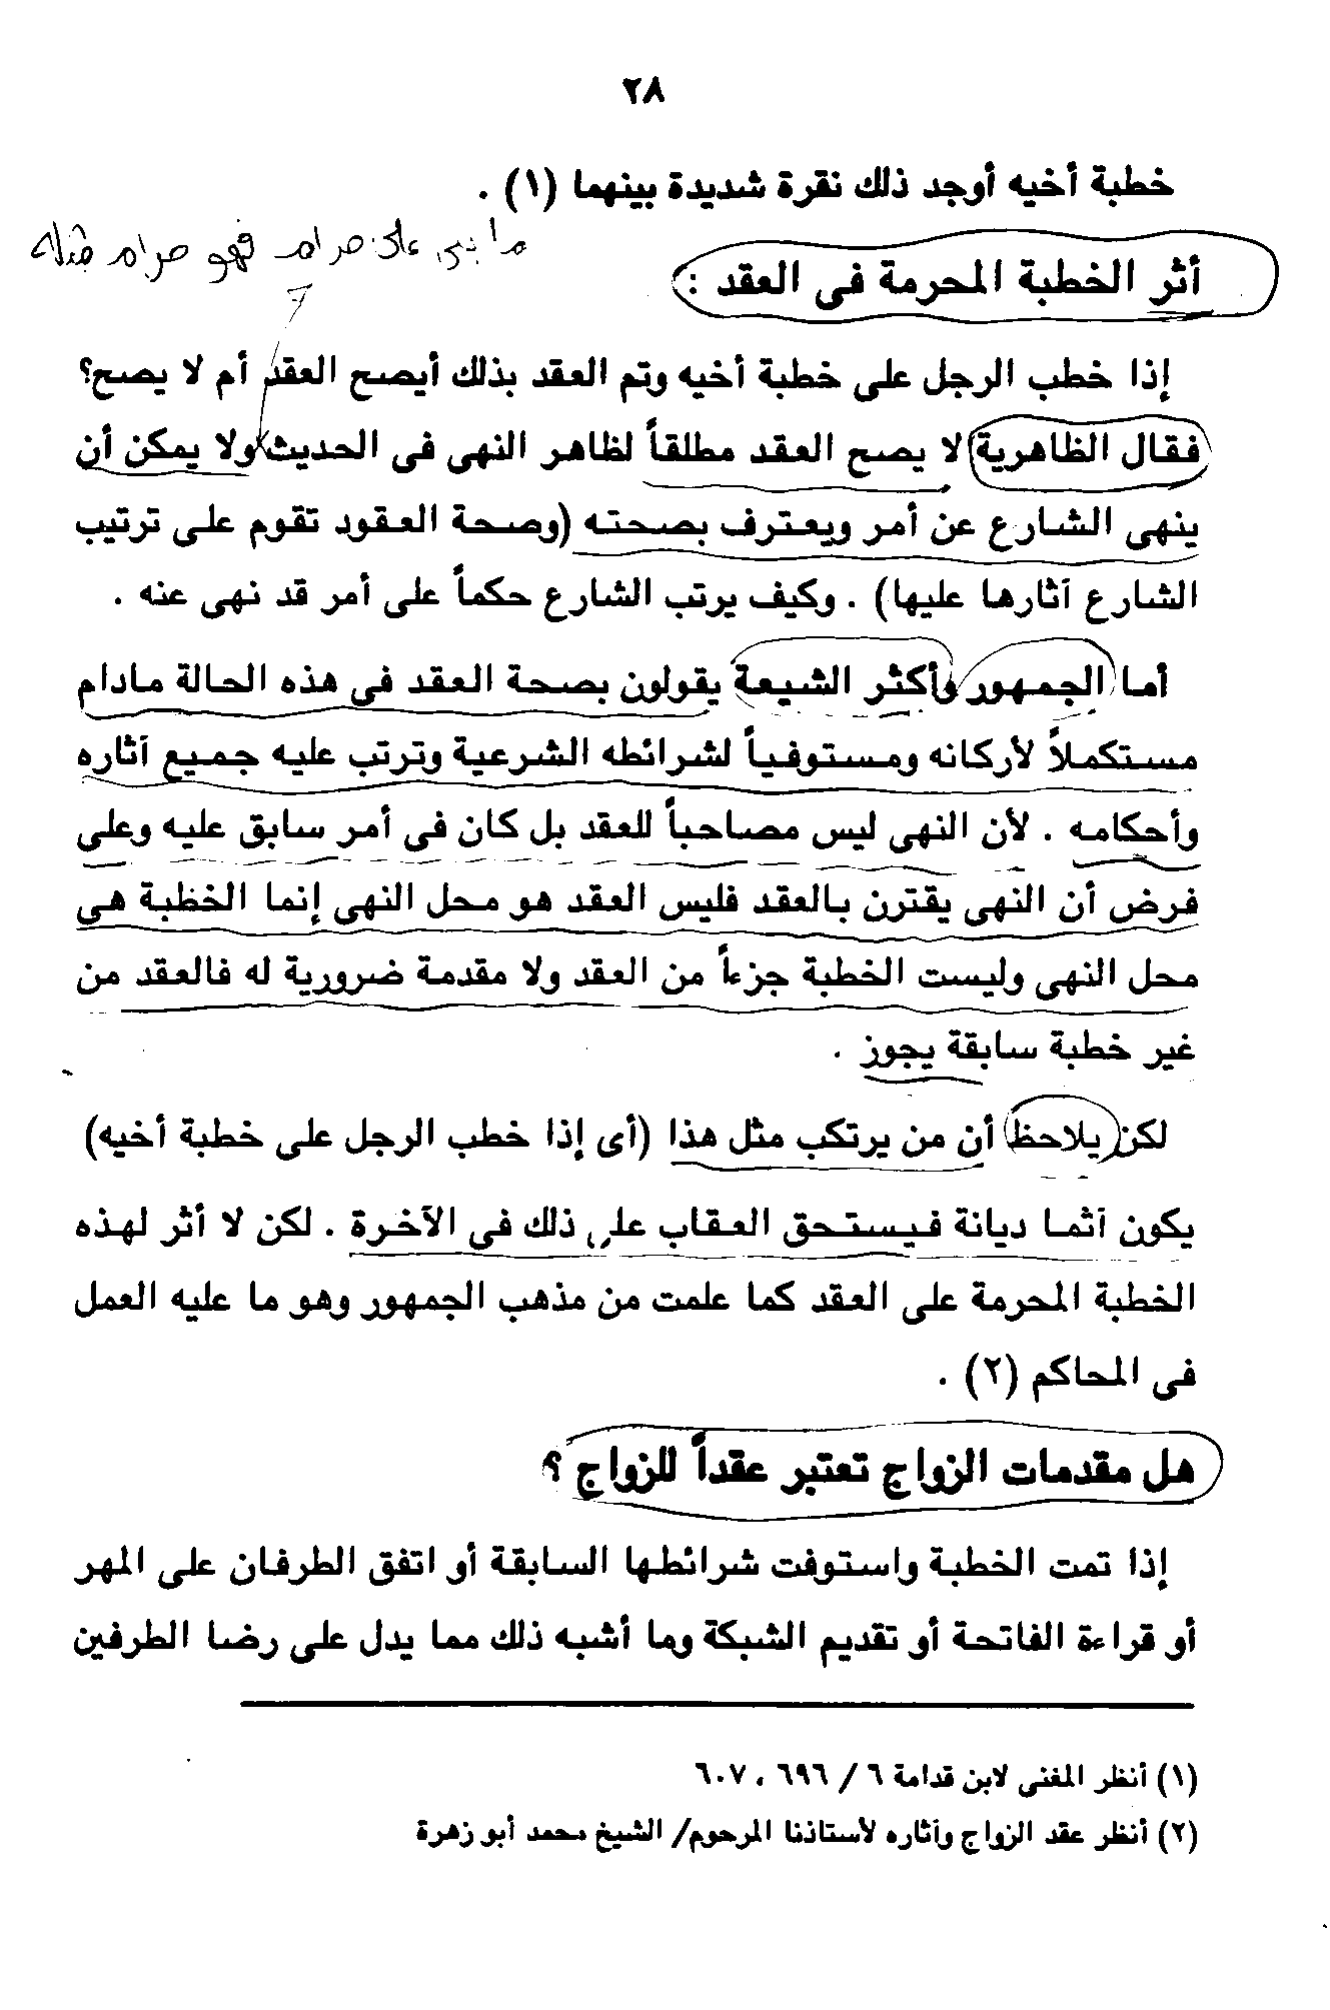 ٢٨
خطبة أخيه أوجد ذلك نقرة شديدة بينهما (١) .
ما بنى على حرام فهو حرام مثله
أثر الخطبة المحرمة فى العقد :
إذا خطب الرجل على خطبة أخيه وتم العقد بذلك أيصح العقد أم لا يصح؟
فقال الظاهرية لا يصح العقد مطلقاً لظاهر النهى فى الحديث ولا يمكن أن
ينهى الشارع عن أمر ويعترف بصحته (وصحة العقود تقوم على ترتيب
الشارع آثارها عليها) . وكيف يرتب الشارع حكماً على أمر قد نهى عنه .
أما الجمهور وأكثر الشيعة يقولون بصحة العقد فى هذه الحالة مادام
مستكملاً لأركانه ومستوفياً لشرائطه الشرعية وترتب عليه جميع آثاره
وأحكامه . لأن النهى ليس مصاحباً للعقد بل كان فى أمر سابق عليه وعلى
فرض أن النهى يقترن بالعقد فليس العقد هو محل النهى إنما الخطبة هى
محل النهى وليست الخطبة جزءاً من العقد ولا مقدمة ضرورية له فالعقد من
غير خطبة سابقة يجوز .
لكن يلاحظ أن من يرتكب مثل هذا (أى إذا خطب الرجل على خطبة أخيه)
يكون آثما ديانة فيستحق العقاب على ذلك فى الآخرة . لكن لا أثر لهذه
الخطبة المحرمة على العقد كما علمت من مذهب الجمهور وهو ما عليه العمل
فى المحاكم (٢) .
هل مقدمات الزواج تعتبر عقداً للزواج ؟
إذا تمت الخطبة واستوفت شرائطها السابقة أو اتفق الطرفان على المهر
أو قراءة الفاتحة أو تقديم الشبكة وما أشبه ذلك مما يدل على رضا الطرفين
(١) أنظر المغنى لابن قدامة ٦ / ٦٩٦ ، ٦٠٧
(٢) أنظر عقد الزواج وآثاره لأستاذنا المرحوم/ الشيخ محمد أبو زهرة